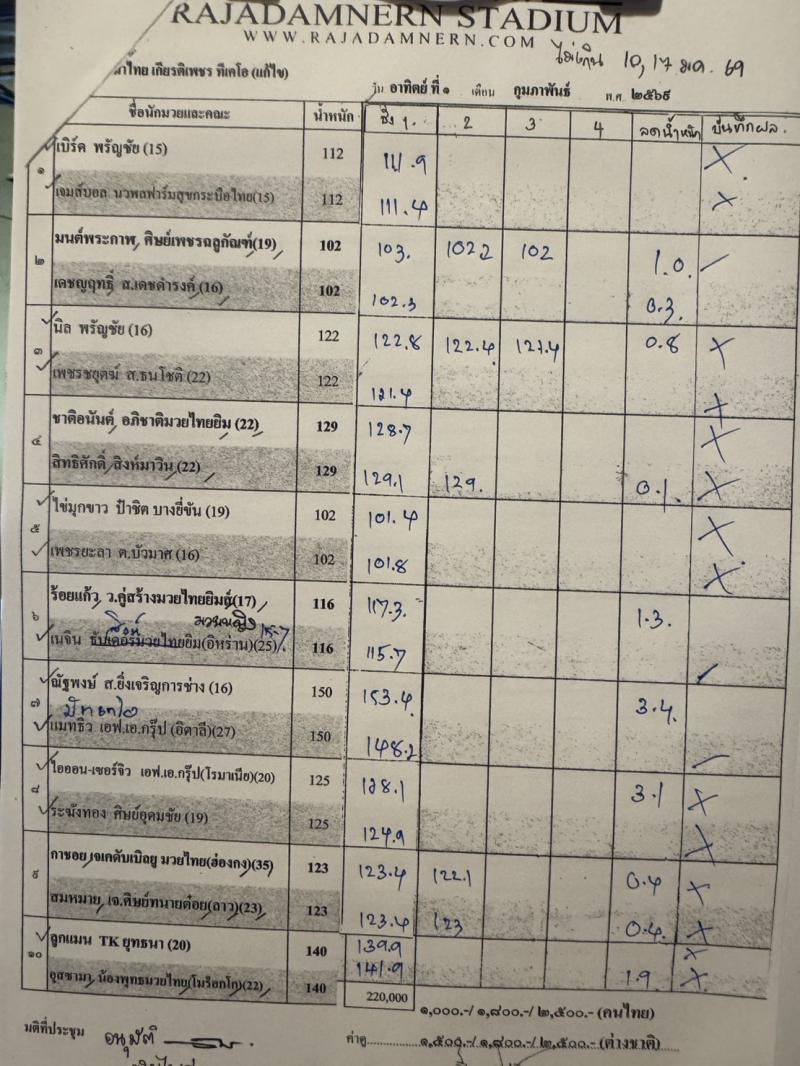 RAJADAMNERN STADIUM
WWW.RAJADAMNERN.COM
ไม่เกิน 10, 17 มค. 69
เกียรติเพชร ทีเคโอ (แก้ไข)
วัน อาทิตย์ ที่ ๑ เดือน กุมภาพันธ์ พ.ศ ๒๕๖๙
ชื่อนักมวยและคณะ น้ำหนัก ชั่ง 1. 2 3 4 ลดน้ำหนัก บันทึกผล.
๑ เบิร์ด พรัญชัย (15) 112 111.9 X
เจมส์บอล นวพลฟาร์มสุขกระบือไทย(15) 112 111.4 X
๒ มนต์พระกาฬ, ศิษย์เพชรฉลูกัณฑ์(19) 102 103. 102.2 102 1.0.
เดชญฤทธิ์ ส.เดชดำรงค์ (16) 102 102.3 0.3.
๓ นิล พรัญชัย (16) 122 122.8 122.4 121.4 0.8 X
เพชรชยุตม์ ส.ธนโชติ (22) 122 121.4 X
๔ ชาติอนันต์, อภิชาติมวยไทยยิม (22) 129 128.7 X
สิทธิศักดิ์, สิงห์มาวิน (22) 129 129.1 129. 0.1. X
๕ ไข่มุกขาว ป๋าชิต บางยี่ขัน (19) 102 101.4 X
เพชรยะลา ต.บัวมาศ (16) 102 101.8 X
๖ ร้อยแก้ว, ว.คู่สร้างมวยไทยยิมส์(17) 116 117.3. 1.3.
มวยหญิง 115.7
เนจิน มวยไทยยิม(อิหร่าน)(25) 116 115.7
๗ ณัฐพงษ์ ส.ยิ่งเจริญการช่าง (16) 150 153.4 3.4.
แมทธิว เอฟ.เอ.กรุ๊ป (อิตาลี)(27) 150 148.2
๘ ไอออน-เซอร์จิว เอฟ.เอ.กรุ๊ป(โรมาเนีย)(20) 125 128.1 3.1 X
ระฆังทอง ศิษย์อุดมชัย (19) 125 124.9 X
๙ กาชอย, เจเคดับเบิลยู มวยไทย(ฮ่องกง)(35) 123 123.4 122.1 0.4 X
สมหมาย, เจ.ศิษย์ทนายต๋อย(ลาว)(23) 123 123.4 123 0.4. X
๑๐ ลูกแมน TK ยุทธนา (20) 140 139.9 X
อุสซามา, น้องพุทธมวยไทย(โมร็อกโก)(22) 140 141.9 1.9. X
220,000 ๑,๐๐๐.-/ ๑,๘๐๐.-/ ๒,๕๐๐.- (คนไทย)
มติที่ประชุม อนุมัติ ค่าดู ๑,๕๐๐.-/ ๑,๘๐๐.-/ ๒,๕๐๐.- (ต่างชาติ)